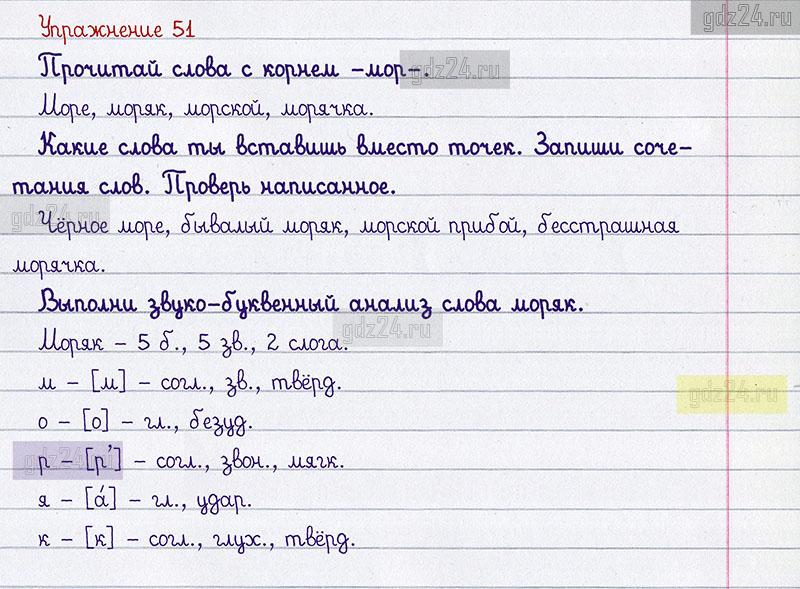 gdz24.ru
Упражнение 51
Прочитай слова с корнем –мор–.
gdz24.ru
Море, моряк, морской, морячка.
Какие слова ты вставишь вместо точек. Запиши соче–
тания слов. Проверь написанное.
gdz24.ru
Чёрное море, бывалый моряк, морской прибой, бесстрашная
морячка.
Выполни звуко–буквенный анализ слова моряк.
gdz24.ru
Моряк – 5 б., 5 зв., 2 слога.
м – [м] – согл., зв., твёрд.
gdz24.ru
о – [о] – гл., безуд.
р – [р’] – согл., звон., мягк.
gdz24.ru
я – [á] – гл., удар.
к – [к] – согл., глух., твёрд.